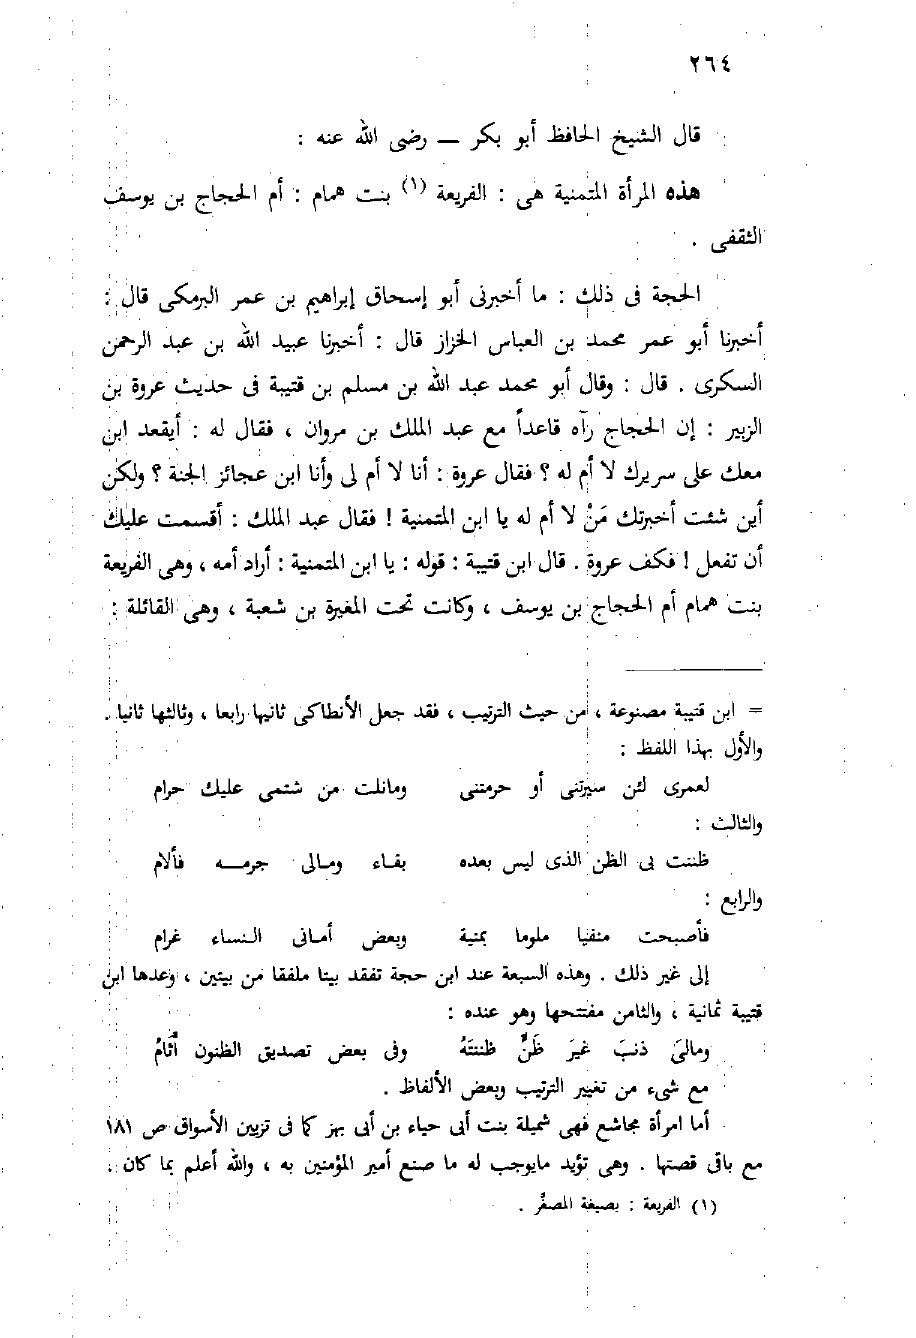 ٢٦٤
قال الشيخ الحافظ أبو بكر — رضى الله عنه :
هذه المرأة المتمنية هى : الفريعة (١) بنت همام : أم الحجاج بن يوسف
الثقفى .
الحجة فى ذلك : ما أخبرنى أبو إسحاق إبراهيم بن عمر البرمكى قال :
أخبرنا أبو عمر محمد بن العباس الخزاز قال : أخبرنا عبيد الله بن عبد الرحمن
السكرى . قال : وقال أبو محمد عبد الله بن مسلم بن قتيبة فى حديث عروة بن
الزبير : إن الحجاج رآه قاعداً مع عبد الملك بن مروان ، فقال له : أيقعد ابن
معك على سريرك لا أم له ؟ فقال عروة : أنا لا أم لى وأنا ابن عجائز الجنة ؟ ولكن
أين شئت أخبرتك مَنْ لا أم له يا ابن المتمنية ! فقال عبد الملك : أقسمت عليك
أن تفعل ! فكف عروة . قال ابن قتيبة : قوله : يا ابن المتمنية : أراد أمه ، وهى الفريعة
بنت همام أم الحجاج بن يوسف ، وكانت تحت المغيرة بن شعبة ، وهى القائلة :
= ابن قتيبة مصنوعة ، من حيث الترتيب ، فقد جعل الأنطاكى ثانيها رابعا ، وثالثها ثانيا .
والأول بهذا اللفظ :
لعمرى لئن سيرتنى أو حرمتنى ومانلت من شتمى عليك حرام
والثالث :
ظننت بى الظن الذى ليس بعده بقاء ومالى جرمه فألام
والرابع :
فأصبحت منفيا ملوما بمنية وبعض أمانى النساء غرام
إلى غير ذلك . وهذه السبعة عند ابن حجة تفقد بيتا ملفقا من بيتين ، وعدها ابن
قتيبة ثمانية ، والثامن مفتتحها وهو عنده :
ومالىَ ذنبَ غيرَ ظَنٍّ ظننتَهُ وفى بعض تصديق الظنون أثَامُ
مع شىء من تغيير الترتيب وبعض الألفاظ .
أما امرأة مجاشع فهى شميلة بنت أبى حياء بن أبى بهز كما فى تزيين الأسواق ص ١٨١
مع باقى قصتها . وهى تؤيد مايوجب له ما صنع أمير المؤمنين به ، والله أعلم بما كان .
(١) الفريعة : بصيغة المصغَّر .